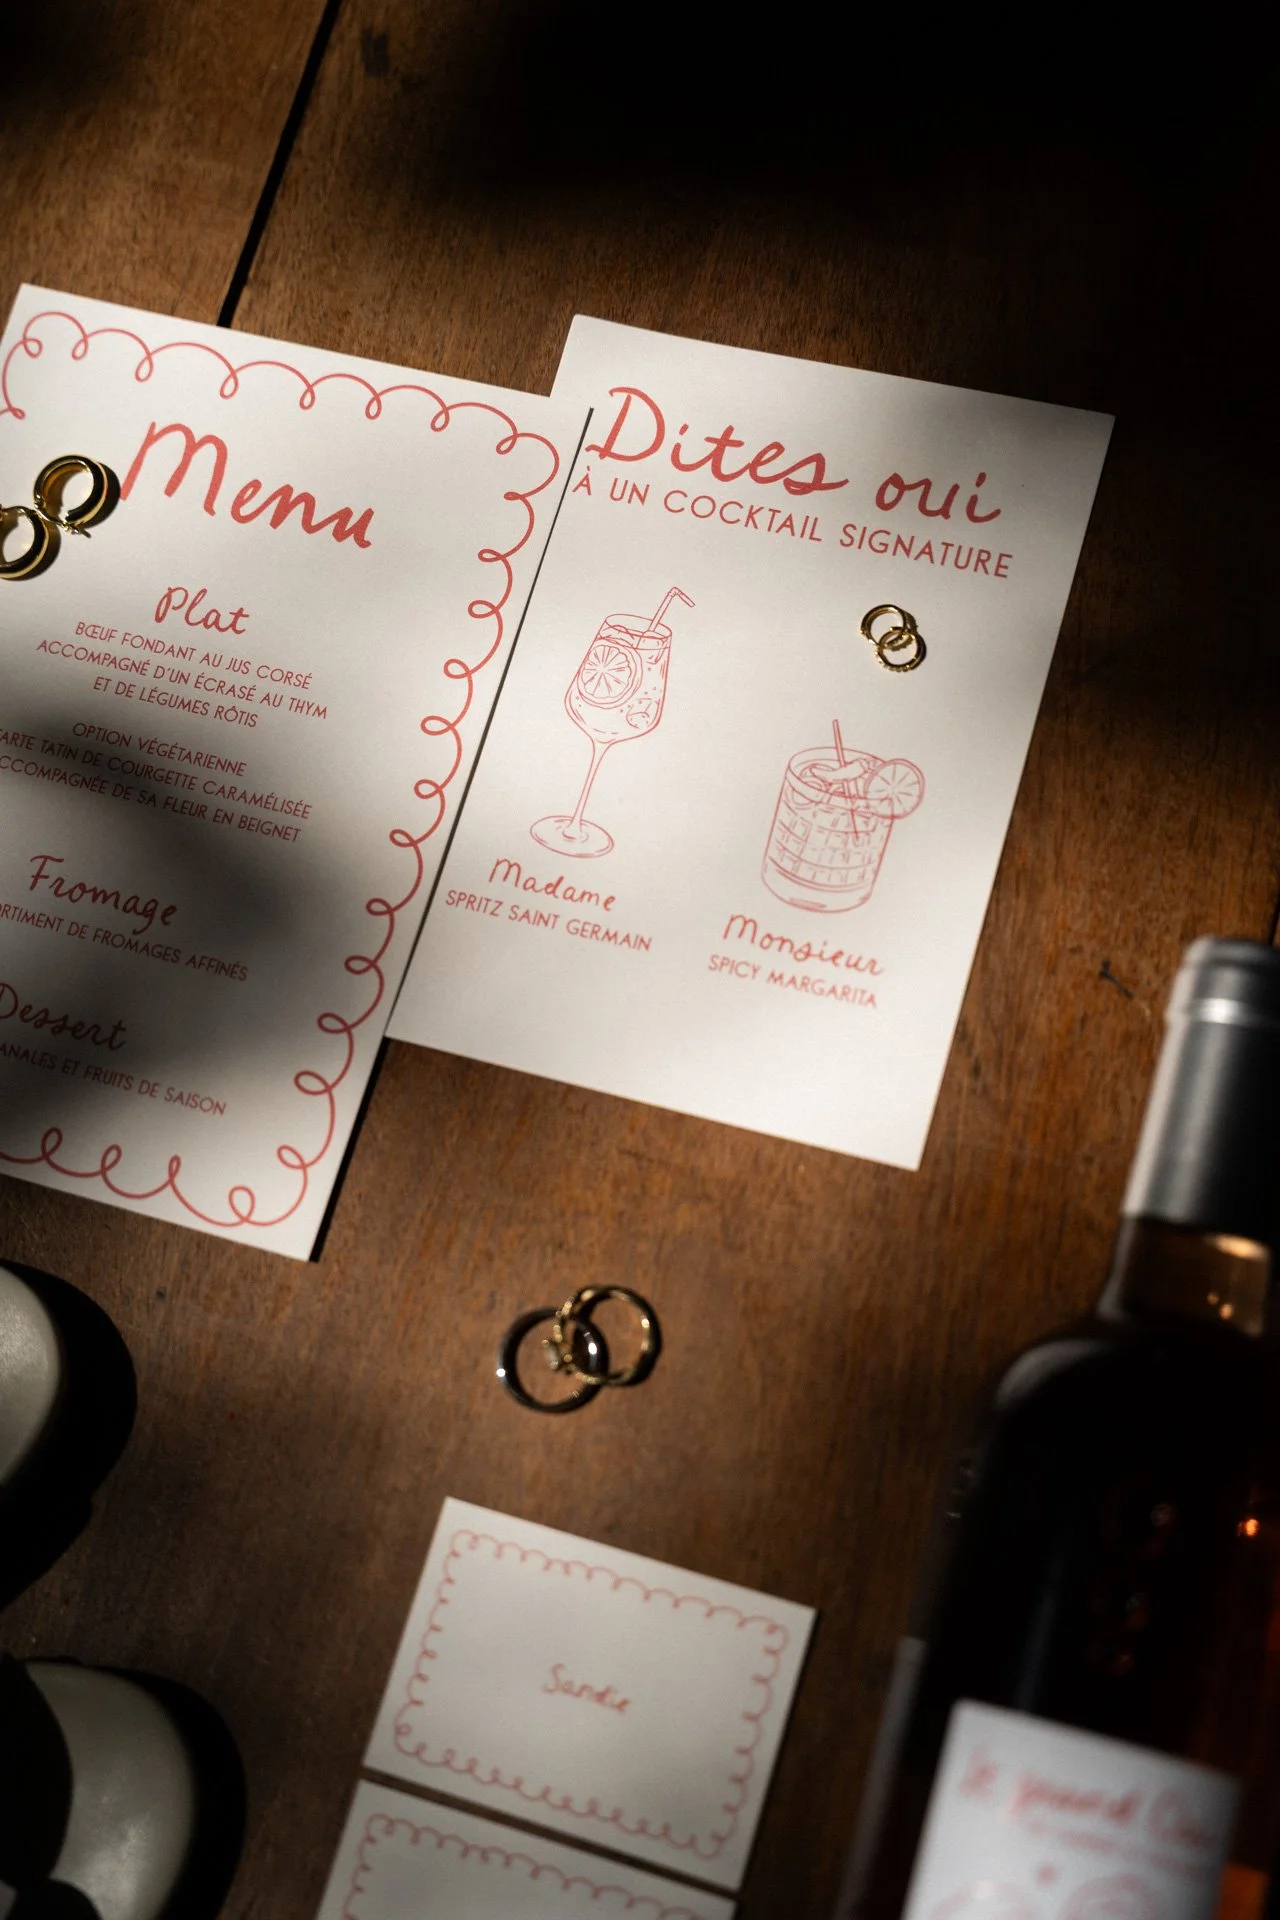 Menu
Plat
BŒUF FONDANT AU JUS CORSÉ
ACCOMPAGNÉ D'UN ÉCRASÉ AU THYM
ET DE LÉGUMES RÔTIS
OPTION VÉGÉTARIENNE
TATIN DE COURGETTE CARAMÉLISÉE
DE SA FLEUR EN BEIGNET
Fromage
DE FROMAGES AFFINÉS
Dessert
ET FRUITS DE SAISON
Dites oui
À UN COCKTAIL SIGNATURE
Madame
SPRITZ SAINT GERMAIN
Monsieur
SPICY MARGARITA
Sandie